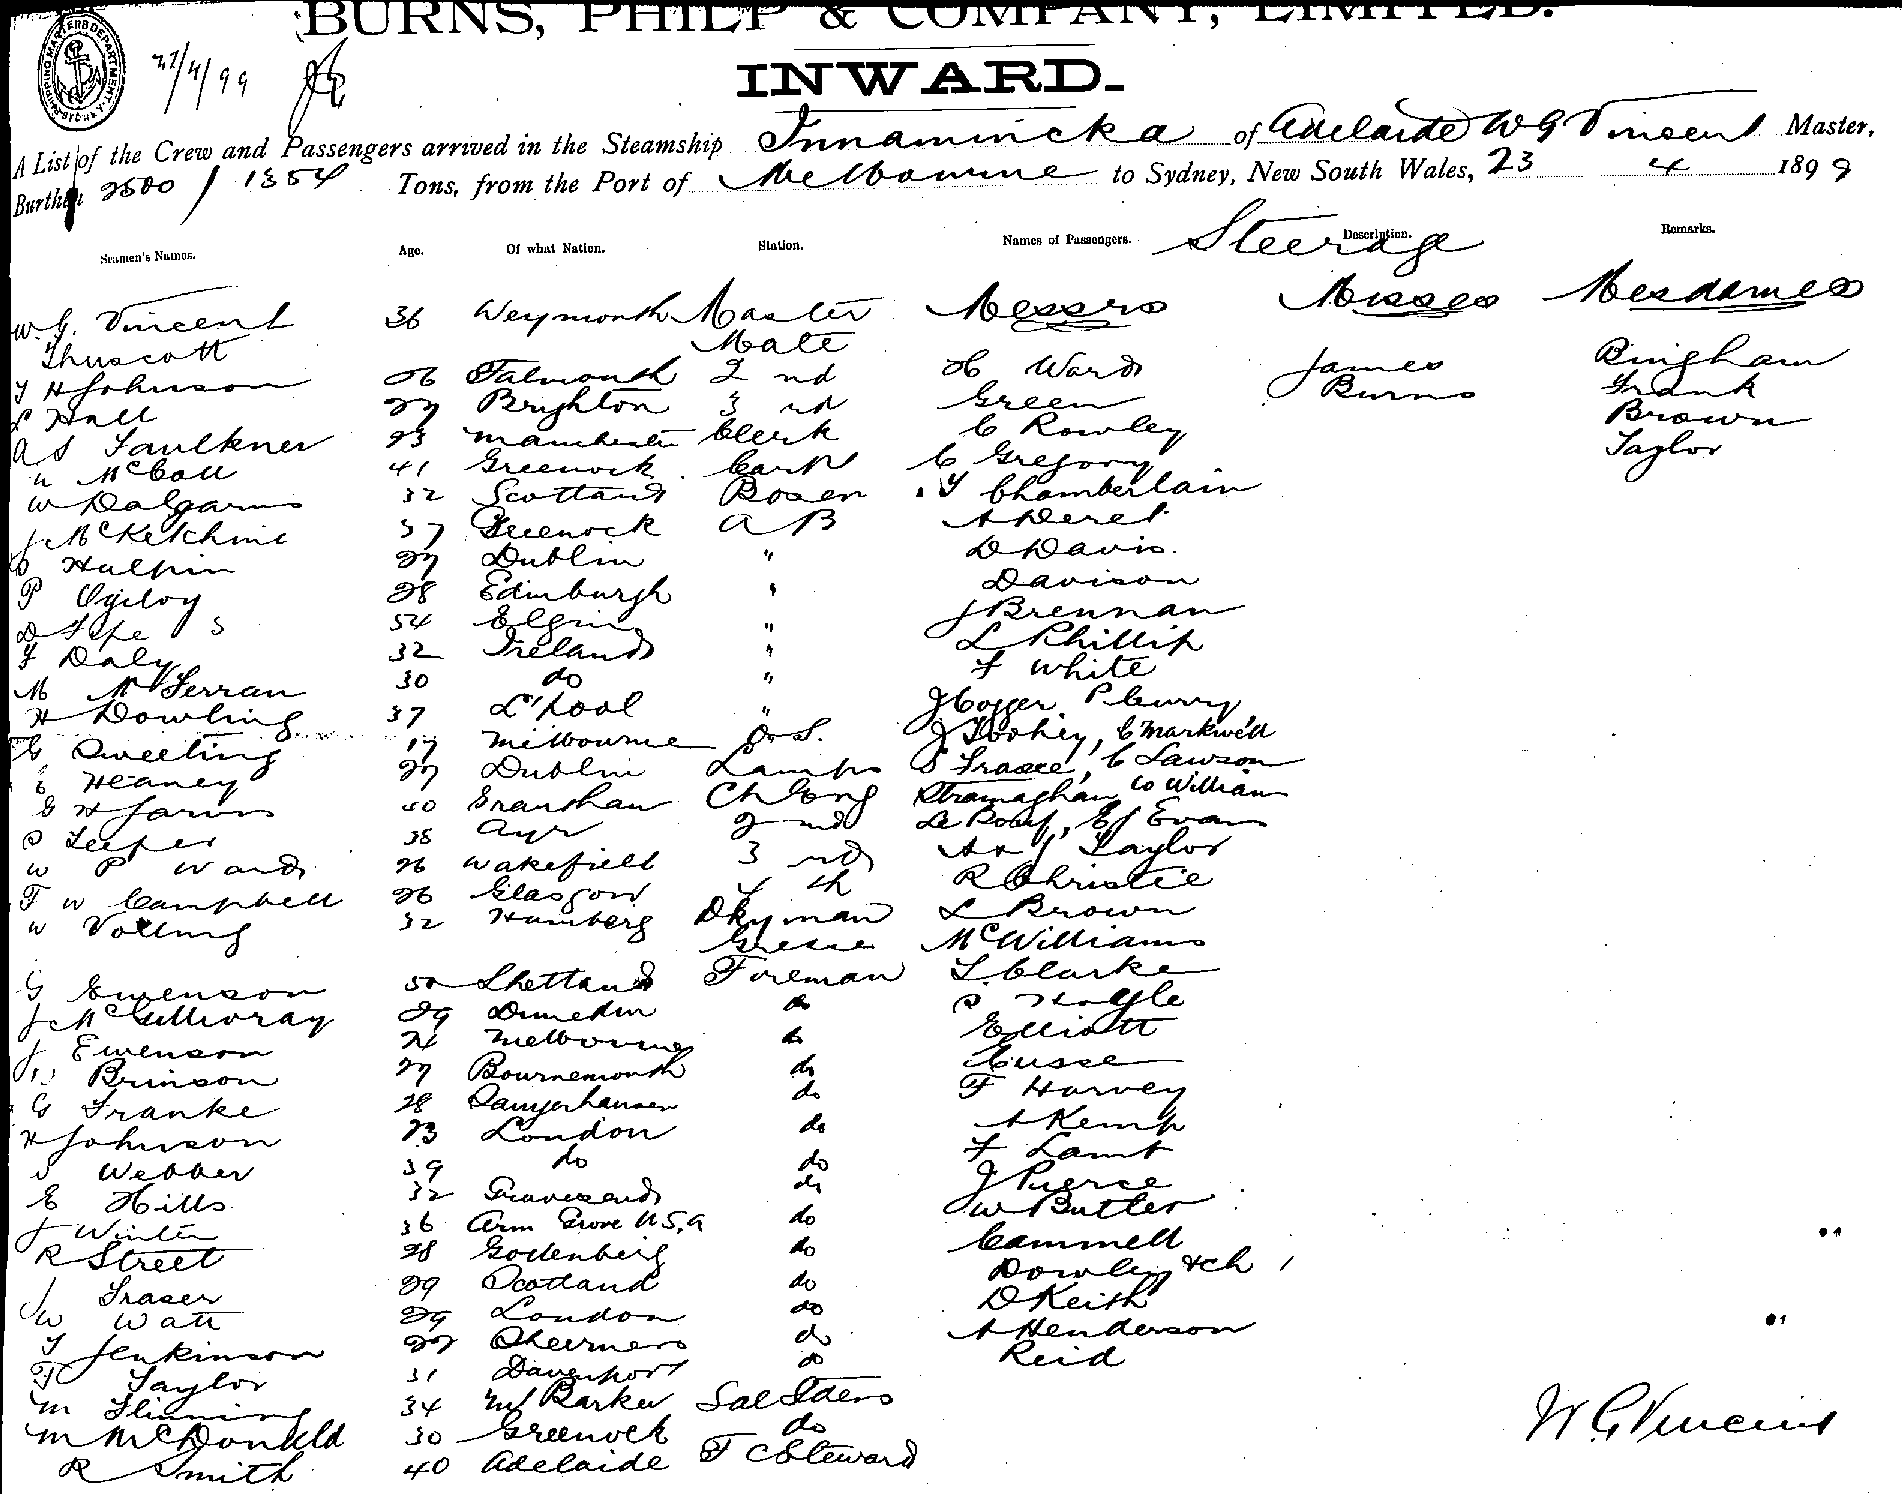 BURNS, PHILP & COMPANY, LIMITED.
INWARD.
A List of the Crew and Passengers arrived in the Steamship Innamincka of Adelaide W G Vincent Master,
Burthen 2500 / 1354 Tons, from the Port of Melbourne to Sydney, New South Wales, 23 4 1899
Steerage
Seamen's Names. Age. Of what Nation. Station. Names of Passengers. Description. Remarks.
W. G. Vincent 36 Weymouth Master Messrs Misses Mesdames
Thuscott Mate
H Johnson 26 Falmouth 2 nd H Ward James Bingham
Hall 27 Brighton 3 rd Green Burns Frank
A S Faulkner 23 Manchester Clerk C Rowley Brown
McColl 41 Greenock Carp C Gregory Taylor
W Dalgarns 32 Scotland Bosen Chamberlain
J McKetchnie 37 Greenock A B A Deret
Halpin 27 Dublin " D Davis.
P Ogilvy 28 Edinburgh " Davison
D 54 Elgin " J Brennan
Daly 32 Ireland " L Phillip
M McFerran 30 do " F White
H Dowling 37 L'pool " J P Curry
G Sweeting 17 Melbourne O.S. J Toohey, C Markwell
Heaney 27 Dublin Lamps C Lawson
G H Jarvis 40 Ch Eng Stramaghan Co William
38 Ayr 2 nd E J Evans
W P Ward 26 Wakefield 3 rd Taylor
F W Campbell 26 Glasgow 4 th R Christie
W 32 Hamberg Dkyman L Brown
McWilliams
G Ewenson 50 Shetland Foreman Clarke
29 Dunedin do
J Ewenson 21 Melbourne do Elliott
Brinson 27 Bournemouth do
G Franke 28 Sangerhausen do F Harvey
H Johnson 23 London do A Kemp
Webber 39 do do F Lamb
E Hills 32 Gravesend do J Pierce
J Winter 36 Grove U S, A do W Butler
R Street 28 Godenberg do Cammell
Fraser 29 Scotland do Dowley & ch 1
W Watt 29 London do D Keith
Jenkinson 27 Sheerness do A Henderson
Taylor 31 Davenport do Reid
M 34 Mt Barker
M McDonald 30 Greenock do
R Smith 40 Adelaide F C Steward
W G Vincent